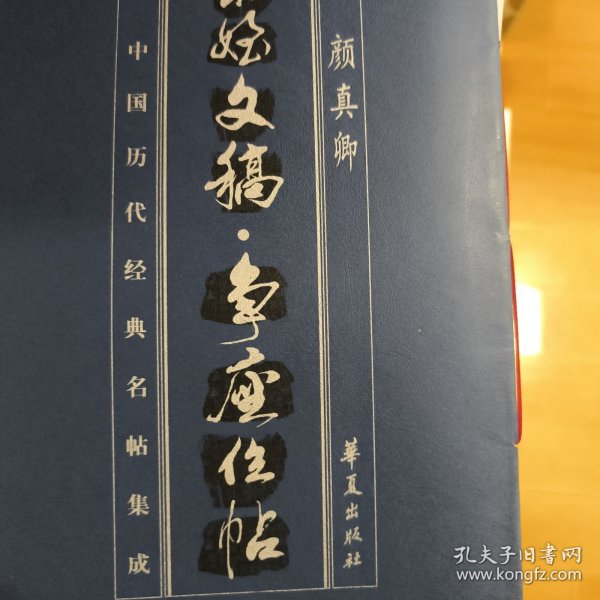 颜真卿
侄文稿·争座位帖
中国历代经典名帖集成
華夏出版社
孔夫子旧書网
www.kongfz.com